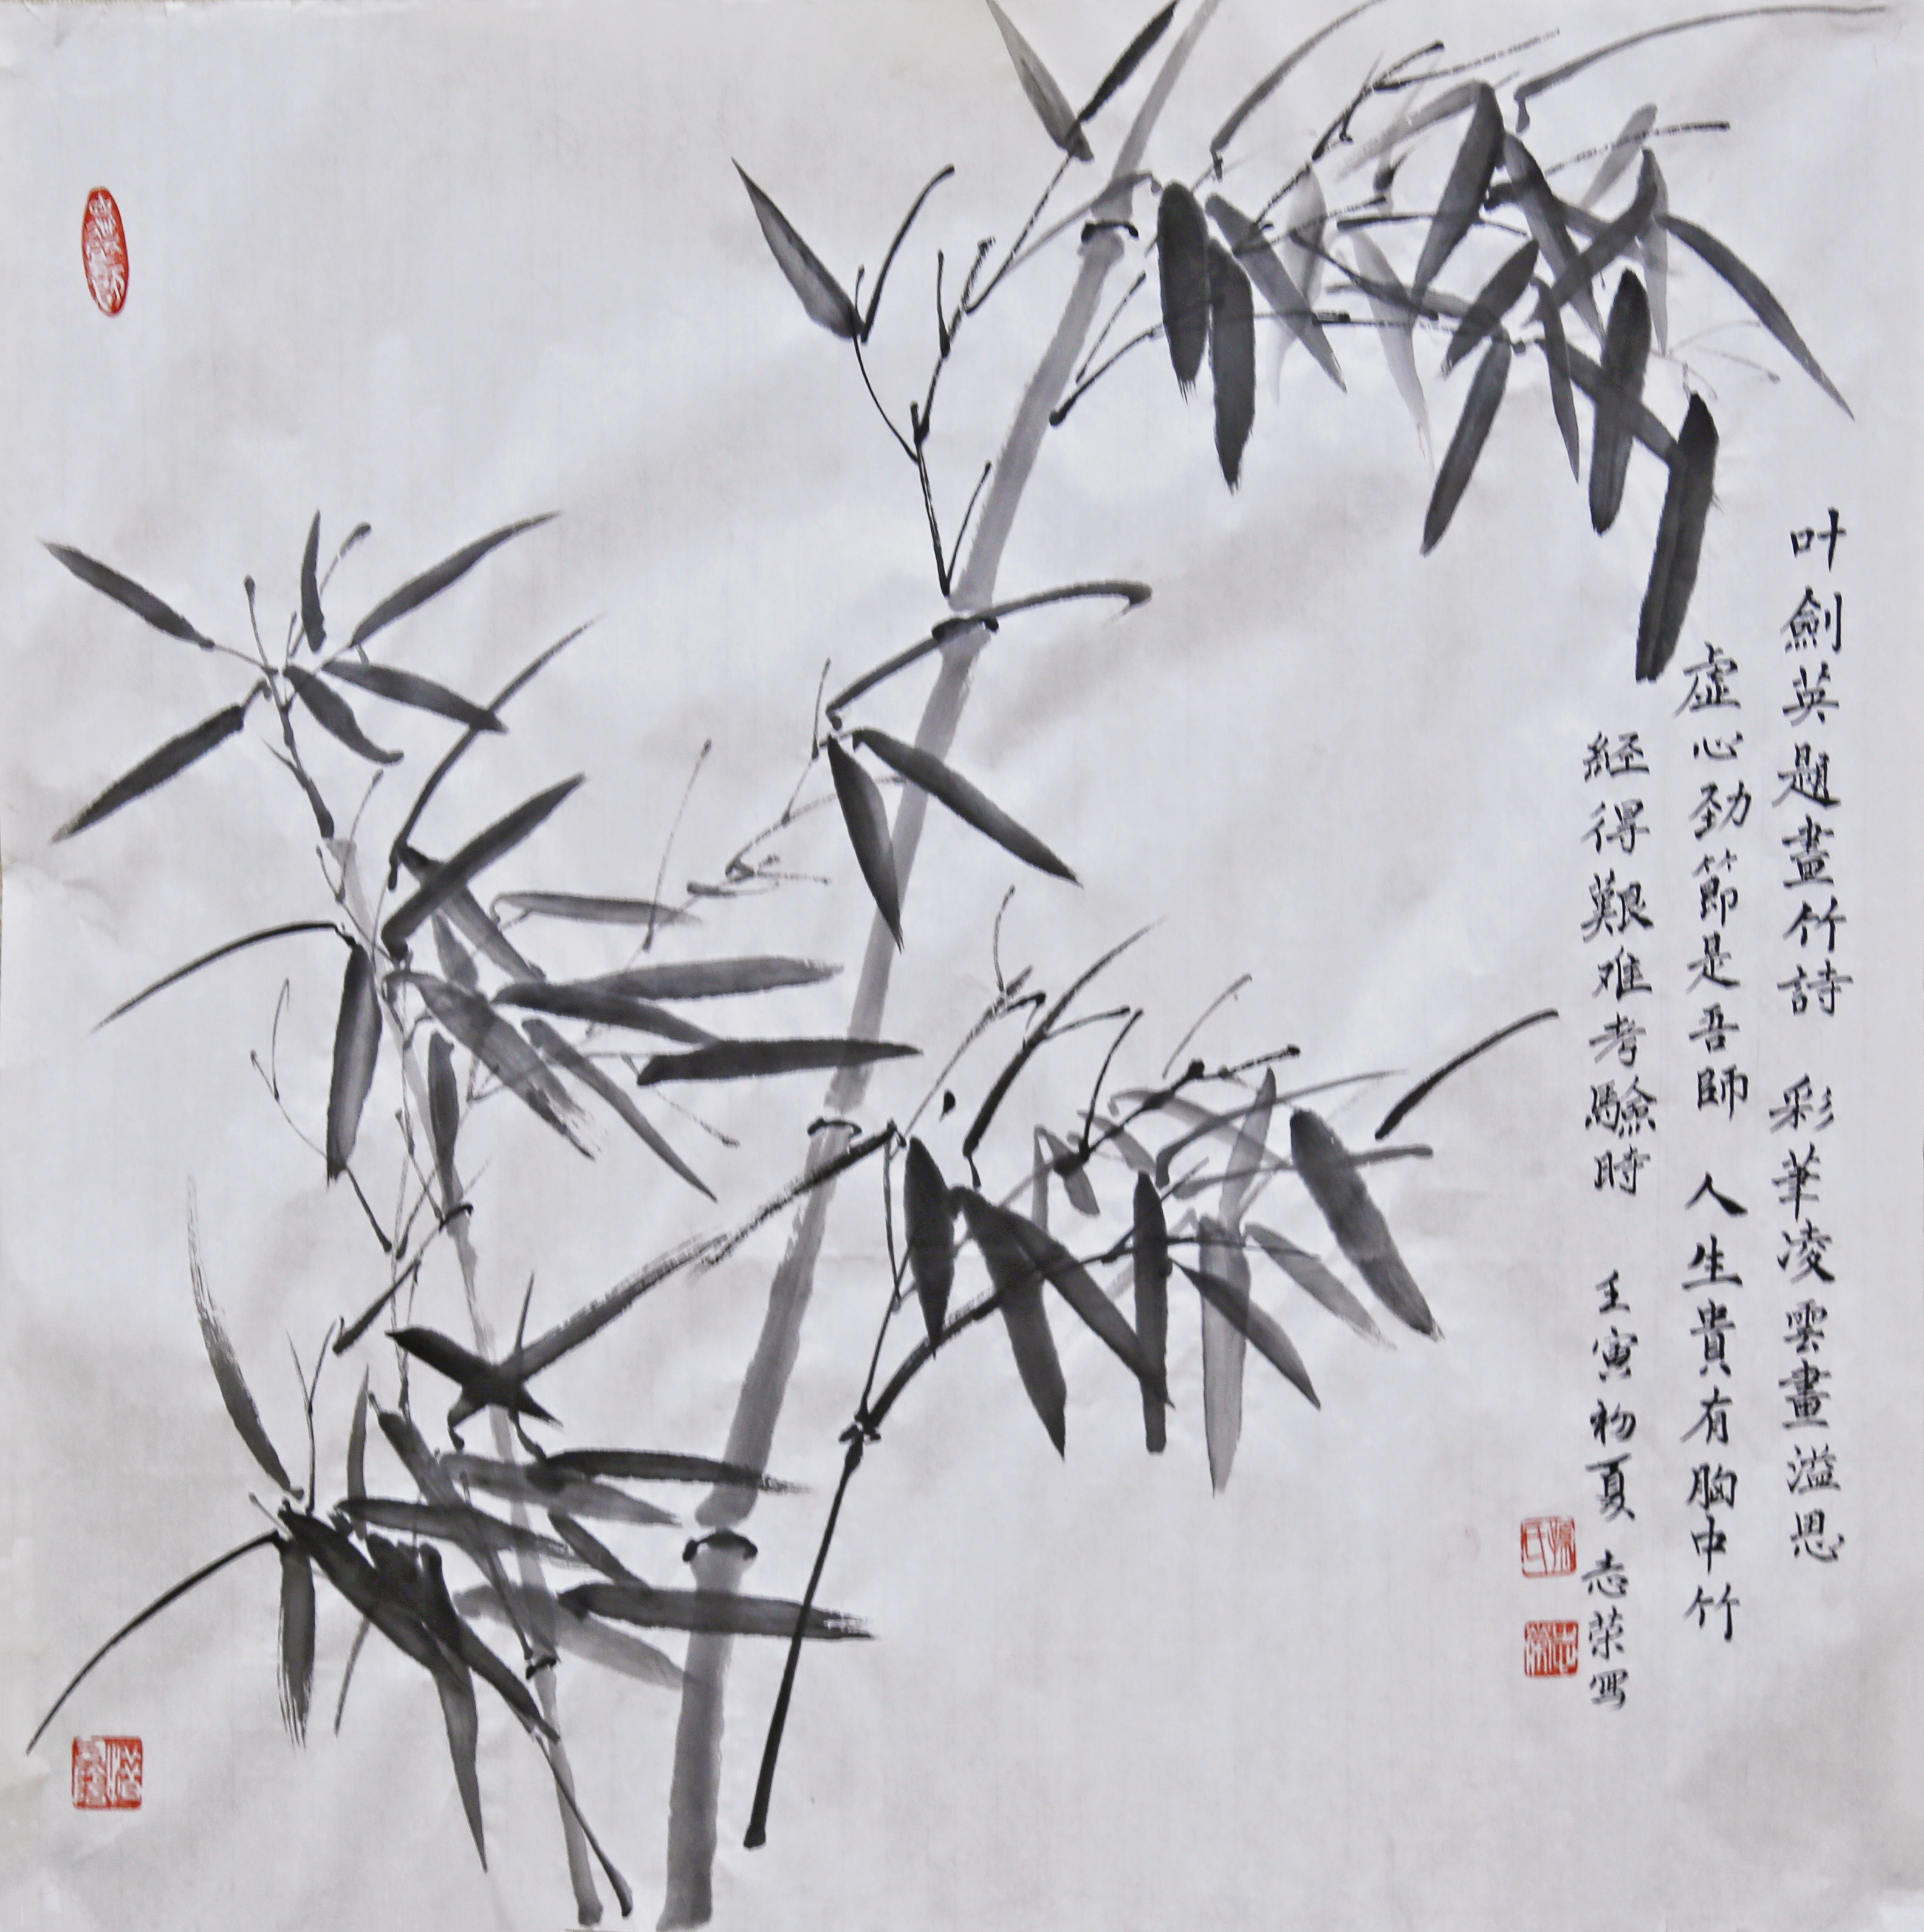 叶劍英題畫竹詩 彩筆凌雲畫溢思
虛心勁節是吾師 人生貴有胸中竹
経得艱难考驗時 壬寅初夏 志荣寫